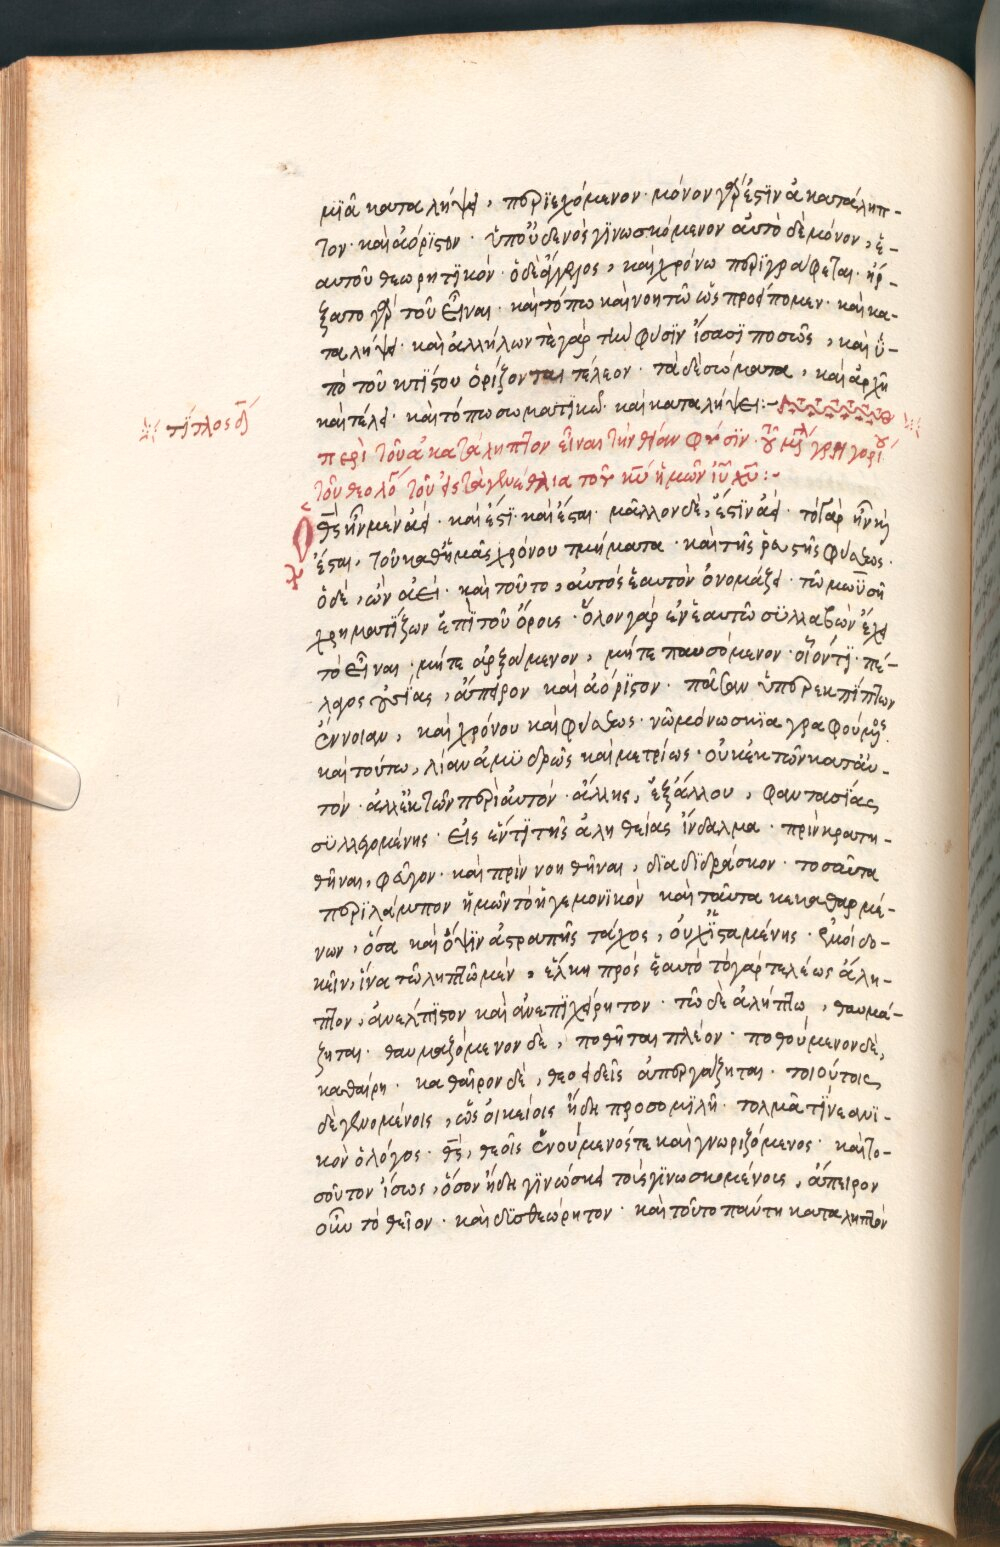 μϊᾶ καταλήψει, περϊεχόμενον· μόνον γάρ ἐστϊν ἀκατάληπ-
τον· καὶ ἀόρϊστον· ὑπ' οὐδενὸς γϊνωσκόμενον αὐτὸ δὲ μόνον, ἑ-
αυτοῦ θεωρητϊκόν· ὁ δὲ ἄγγελος, καὶ χρόνω περϊγράφεται· ἤρ-
ξατο γάρ τοῦ εἶναι· καὶ τόπω καὶ νοητῶ ὡς προείπομεν· καὶ κα-
ταλήψει· καὶ ἀλλήλων τὲ γάρ τὴν φύσϊν ἴσασϊ ποσῶς, καὶ ὑ-
πὸ τοῦ κτϊστου ὁρίζονται τέλεον· τὰ δὲ σώματα, καὶ ἀρχῆ
καὶ τέλει· καὶ τόπω σωματϊκῶ· καὶ καταλήψει:-
τίτλος
περὶ τοῦ ἀκατάληπτον εἶναι τὴν θείαν φύσϊν· τοῦ μεγάλου γρηγορίου
τοῦ θεολό τοῦ εἰς τὰ γενέθλια τοῦ κυ ἡμῶν ιυ χυ:-
Ὁ θς ἦν μὲν ἀεί· καὶ ἔστϊ· καὶ ἔσται· μᾶλλον δὲ, ἔστϊν ἀεί· τὸ γὰρ ἦν καὶ
ἔσται, τοῦ καθ' ἡμᾶς χρόνου τμήματα· καὶ τῆς ῥευστῆς φύσεως·
ὁ δὲ, ὢν ἀεί· καὶ τοῦτο, αὐτὸς ἑαυτὸν ὀνομάζει· τῶ μωϋσῆ
χρηματϊζων ἐπϊ τοῦ ὄρους· ὅλον γάρ ἐν ἑαυτῶ συλλαβὼν ἔχει
τὸ εἶναι· μήτε ἀρξάμενον, μήτε παυσόμενον· οἷόν τϊ πέ-
λαγος οὐσίας, ἄπειρον καὶ ἀόρϊστον· πᾶσαν ὑπερεκπίπτων
ἔννοιαν, καὶ χρόνου καὶ φύσεως· νῶ μόνω σκϊαγραφούμενος·
καὶ τούτω, λίαν ἀμυδρῶς καὶ μετρίως· οὐκ ἐκ τῶν κατ' αὐ-
τόν· ἀλλ' ἐκ τῶν περὶ αὐτόν· ἄλλης, ἐξ ἄλλου, φαντασίας
συλλεγομένης· εἰς ἕν τϊ τῆς ἀληθείας ἴνδαλμα· πρὶν κρατη-
θῆναι, φεῦγον· καὶ πρὶν νοηθῆναι, δϊαδϊδράσκον· τοσαῦτα
περϊλάμπον ἡμῶν τὸ ἡγεμονϊκὸν καὶ ταῦτα κεκαθαρμέ-
νων, ὅσα καὶ ὄψϊν ἀστραπῆς τάχος, οὐχ ϊσταμένης· ἐμοὶ δο-
κεῖν, ἵνα τῶ ληπτῶ μὲν, ἕλκη πρὸς ἑαυτό τὸ γὰρ τελέως ἄλη-
πτον, ἀνέλπϊστον καὶ ἀνεπϊχείρητον· τῶ δὲ ἀλήπτω, θαυμά-
ζηται· θαυμαζόμενον δὲ, ποθῆται πλέον· ποθούμενον δὲ,
καθαίρη· καθαῖρον δὲ, θεοειδεῖς ἀπεργάζηται· τοιούτοις
δὲ γενομένοις, ὡς οἰκείοις ἤδη προσομϊλῆ· τολμᾶ τϊ νεανϊ-
κὸν ὁ λόγος· θς, θεοῖς ἑνούμενός τε καὶ γνωριζόμενος· καὶ το-
σοῦτον ἴσως, ὅσον ἤδη γϊνώσκει τοὺς γϊνωσκομένους, ἄπειρον
οὖν τὸ θεῖον· καὶ δϋσθεώρητον· καὶ τοῦτο πάντη καταληπτὸν